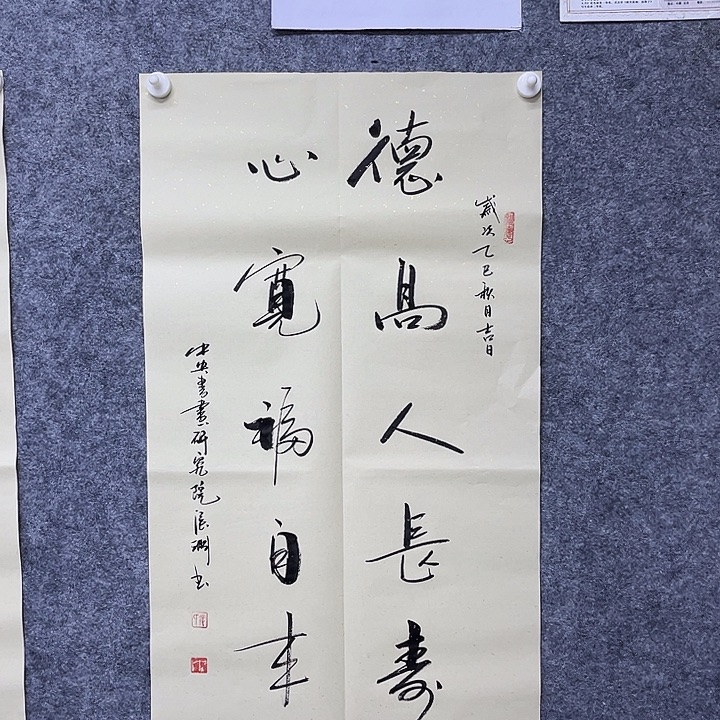 歲次乙巳秋月吉日
德高人長壽
心寬福自来
中央書畫研究院